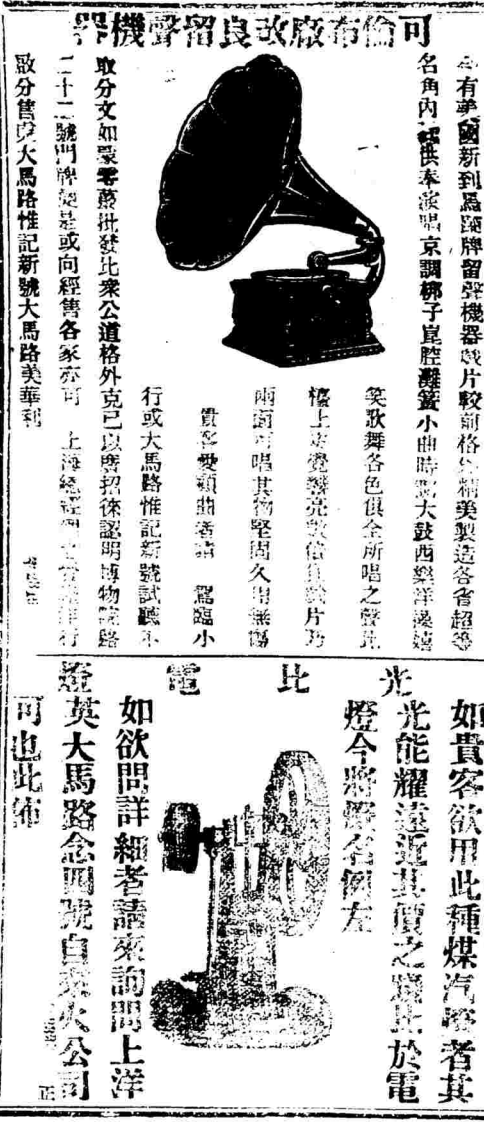 可倫布廠改良留聲機器
有英國新到馬牌留聲機器戲片較前格外精美製造各省超等
名角內供奉演唱京調梆子崑腔灘簧小曲時大鼓西樂洋
笑歌舞各色俱全所唱之聲比
檯上亦覺響亮數倍片乃
兩面可唱其物堅固久用無傷
貴客愛顧曲者請 駕臨小
行或大馬路惟記新號試聽不
取分文如蒙零躉批發比衆公道格外克己以廣招徠認明博物院路
二十二號門牌是或向經售各家亦可 上海
啟分售處大馬路惟記新號大馬路美華利
光比電燈
如貴客欲用此種煤汽燈者其
光能耀遠近其價之廉比於電
燈今將名例左
如欲問詳細者請來詢問上洋
英大馬路念四號自來火公司
可也此佈